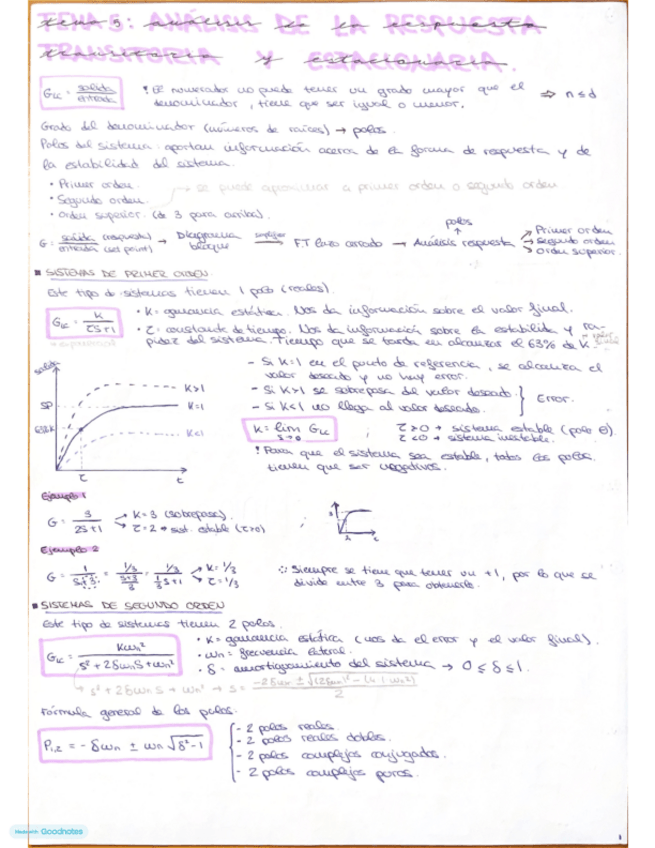 TEMA 3: ANÁLISIS DE LA RESPUESTA
TRANSITORIA Y ESTACIONARIA.
G(s) = salida / entrada
! El numerador no puede tener un grado mayor que el ⇒ n ≤ d
denominador, tiene que ser igual o menor.
Grado del denominador (números de raíces) → polos.
Polos del sistema: aportan información acerca de la forma de respuesta y de
la estabilidad del sistema.
• Primer orden.
→ se puede aproximar a primer orden o segundo orden
• Segundo orden.
• Orden superior. (de 3 para arriba).
G = salida (respuesta) / entrada (set point) → Diagrama bloque → FT lazo cerrado → Análisis respuesta
polos
Primer orden
Segundo orden
Orden superior.
▪ SISTEMAS DE PRIMER ORDEN
Este tipo de sistemas tienen 1 polo (reales).
G(s) = K / τs+1
• K = ganancia estática. Nos da información sobre el valor final.
• τ = constante de tiempo. Nos da información sobre la estabilida y ra-
pidez del sistema. Tiempo que se tarda en alcanzar el 63% de K
- Si K=1 en el punto de referencia, se alcanza el
valor deseado y no hay error.
- Si K>1 se sobrepasa del valor deseado.
- Si K<1 no llega al valor deseado.
} Error.
salida
SP
K>1
K=1
K<1
τ
t
K = lim G(s)
s→0
τ>0 → sistema estable (polo ⊖)
τ<0 → sistema inestable.
! Para que el sistema sea estable, todos los polos
tienen que ser negativos.
Ejemplo 1
G = 3 / 2s+1
→ K=3 (sobrepasa).
→ τ=2 → sist. estable (τ>0)
Ejemplo 2
G = 1 / s+3 = 1/3 / s+3/3 = 1/3 / 1/3 s+1
→ K=1/3
→ τ=1/3
Siempre se tiene que tener un +1, por lo que se
divide entre 3 para obtenerlo.
▪ SISTEMAS DE SEGUNDO ORDEN
Este tipo de sistemas tienen 2 polos.
G(s) = Kωn² / s²+2δωns+ωn²
• K = ganancia estática (nos da el error y el valor final).
• ωn = frecuencia natural.
• δ = amortiguamiento del sistema → 0 ≤ δ ≤ 1.
→ s²+2δωns+ωn² → s = -2δωn ± √(2δωn)²-(4·1·ωn²) / 2
Fórmula general de los polos.
P1,2 = -δωn ± ωn √δ²-1
- 2 polos reales.
- 2 polos reales dobles.
- 2 polos complejos conjugados.
- 2 polos complejos puros.
Made with Goodnotes
1